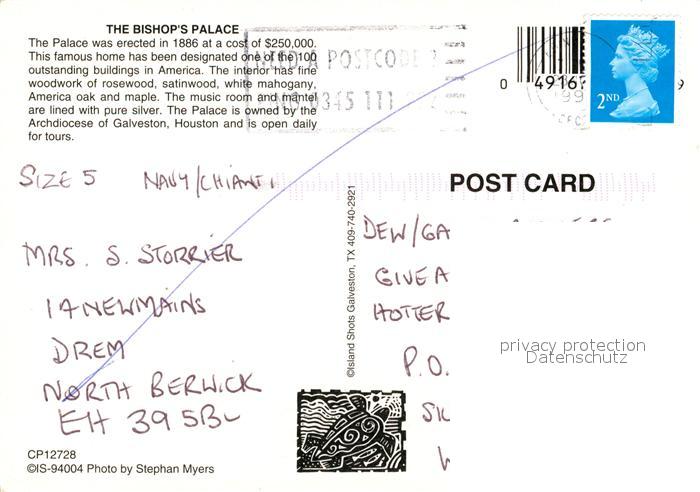 THE BISHOP'S PALACE
The Palace was erected in 1886 at a cost of $250,000.
This famous home has been designated one of the 100
outstanding buildings in America. The interior has fine
woodwork of rosewood, satinwood, white mahogany,
America oak and maple. The music room and mantel
are lined with pure silver. The Palace is owned by the
Archdiocese of Galveston, Houston and is open daily
for tours.
NEED A POSTCODE?
0345 111
0 4916
9
2ND
SIZE 5 NAVY/CHIANTI
POST CARD
MRS. S. STORRIER
1A NEWMAINS
DREM
NORTH BERWICK
EH 39 5BL
©Island Shots Galveston, TX 409-740-2921
DEW/GA
GIVE A
HOTTER
P.O.
privacy protection
Datenschutz
CP12728
©IS-94004 Photo by Stephan Myers